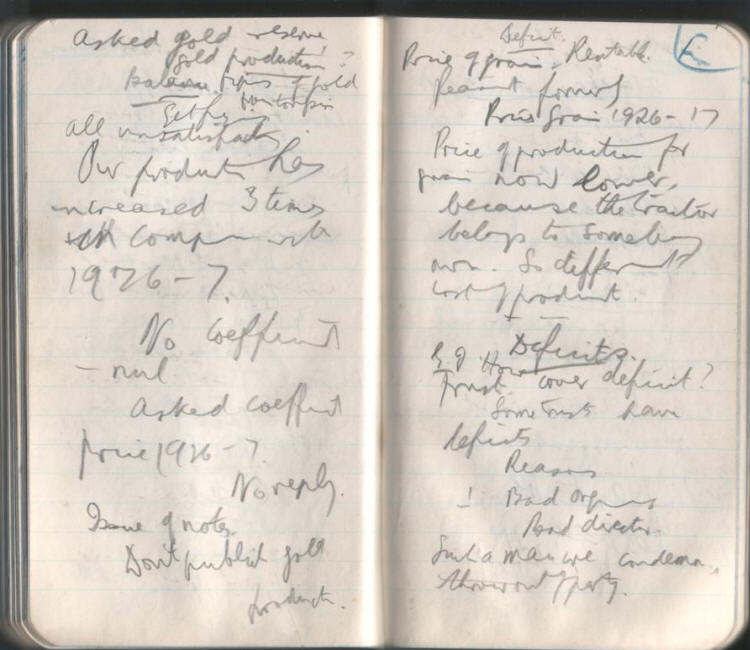 Asked gold reserve
gold production?
Balance gold
all unsatisfactory.
Our production has
increased 3 times
compare with
1926-7.
No coefficient
- nul
Asked coefficient
price 1926-7.
No reply.
Issue of notes
Don't publish gold
product.
Deficit.
Price of grain. Rentable.
Peasant formerly
Price grain 1926-17
Price of production for
grain now lower,
because the tractor
belongs to somebody
now. So different
cost of product.
Deficits.
How
Trust cover deficit?
Some trusts have
deficits
Reasons
! Bad organis
Bad director
Such a man we condemn,
throw out party.